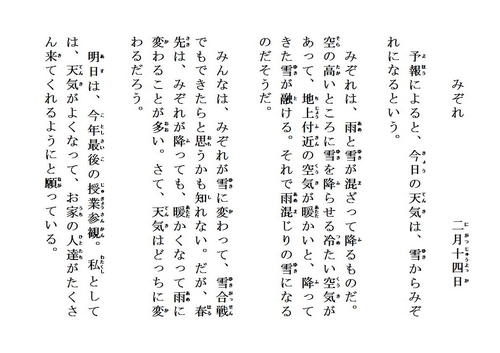 みぞれ　　　二月十四日
予報によると、今日の天気は、雪からみぞ
れになるという。
みぞれは、雨と雪が混ざって降るものだ。
空の高いところに雪を降らせる冷たい空気が
あって、地上付近の空気が暖かいと、降って
きた雪が融ける。それで雨混じりの雪になる
のだそうだ。
みんなは、みぞれが雪に変わって、雪合戦
でもできたらと思うかも知れない。だが、春
先は、みぞれが降っても、暖かくなって雨に
変わることが多い。さて、天気はどっちに変
わるだろう。
明日は、今年最後の授業参観。私として
は、天気がよくなって、お家の人達がたくさ
ん来てくれるようにと願っている。